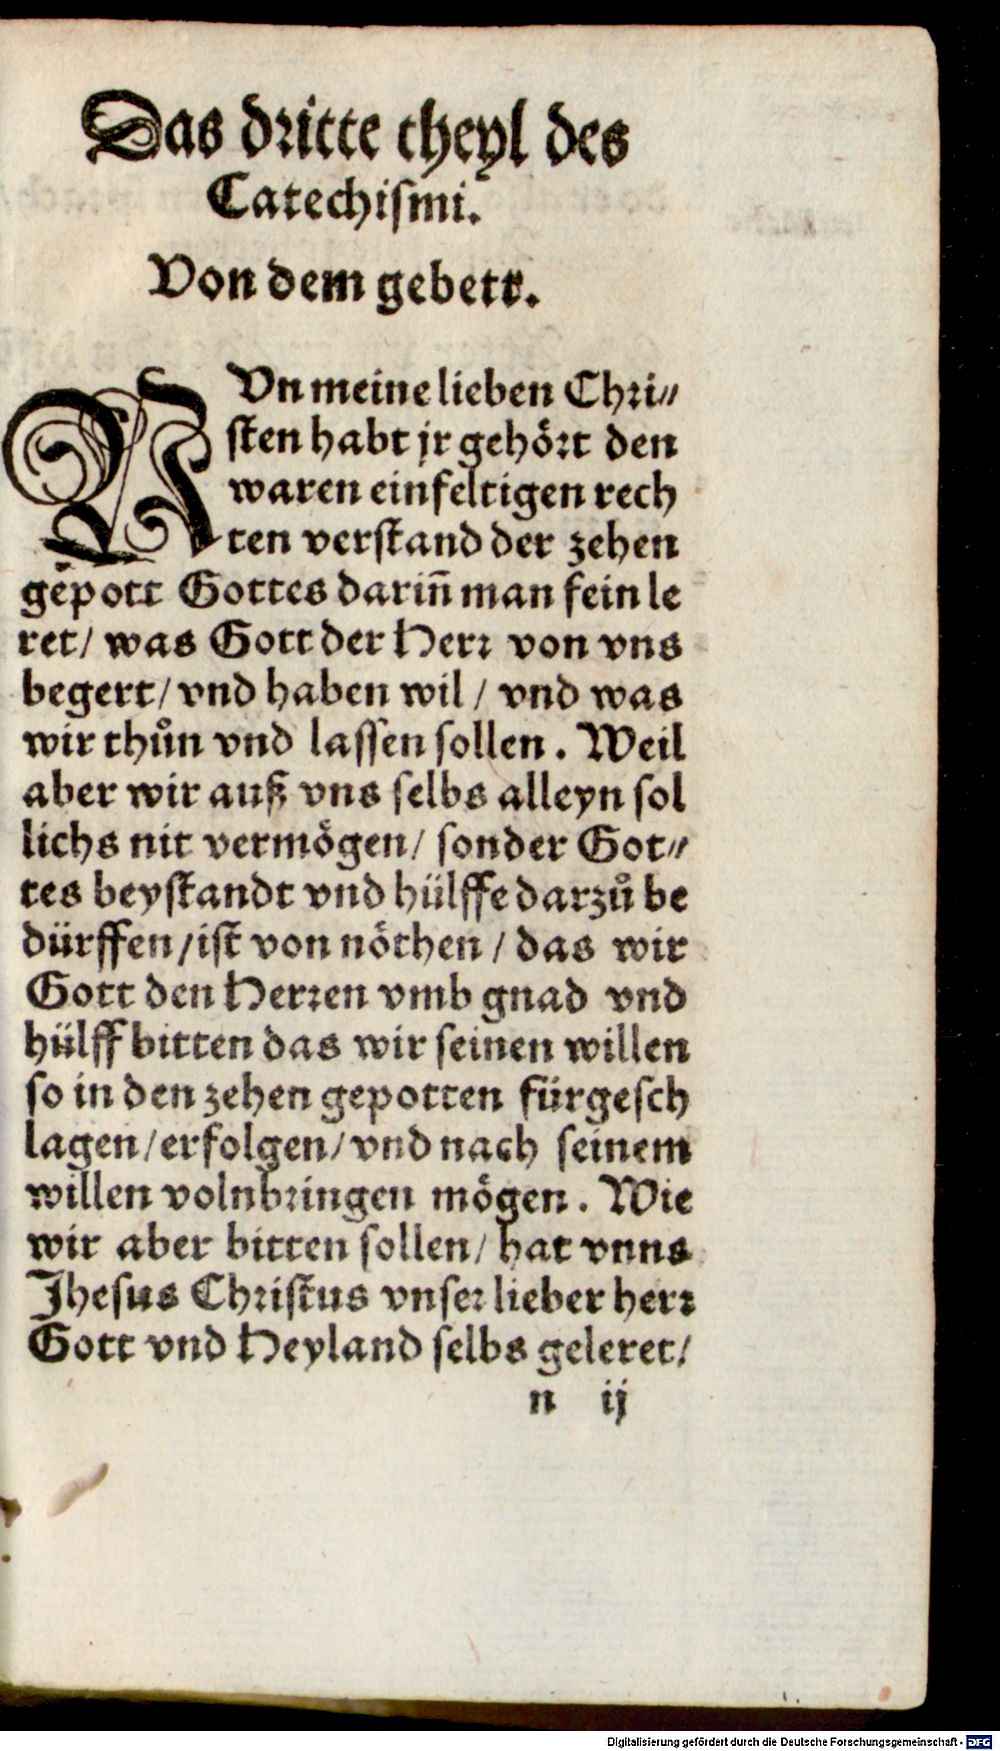 Das dritte theyl des
Catechismi.
Von dem gebett.
NVn meine lieben Chri⸗
sten habt jr gehört den
waren einfeltigen rech
ten verstand der zehen
gepott Gottes darin̄ man fein le
ret/ was Gott der Herr von vns
begert/ vnd haben wil / vnd was
wir thůn vnd lassen sollen. Weil
aber wir auß vns selbs alleyn sol
lichs nit vermögen/ sonder Got⸗
tes beystandt vnd hülffe darzů be
dürffen/ ist von nöthen / das wir
Gott den Herren vmb gnad vnd
hülff bitten das wir seinen willen
so in den zehen gepotten fürgesch
lagen/ erfolgen/ vnd nach seinem
willen volnbringen mögen. Wie
wir aber bitten sollen/ hat vnns
Jhesus Christus vnser lieber herr
Gott vnd Heyland selbs geleret/
n ij
Digitalisierung gefördert durch die Deutsche Forschungsgemeinschaft - DFG